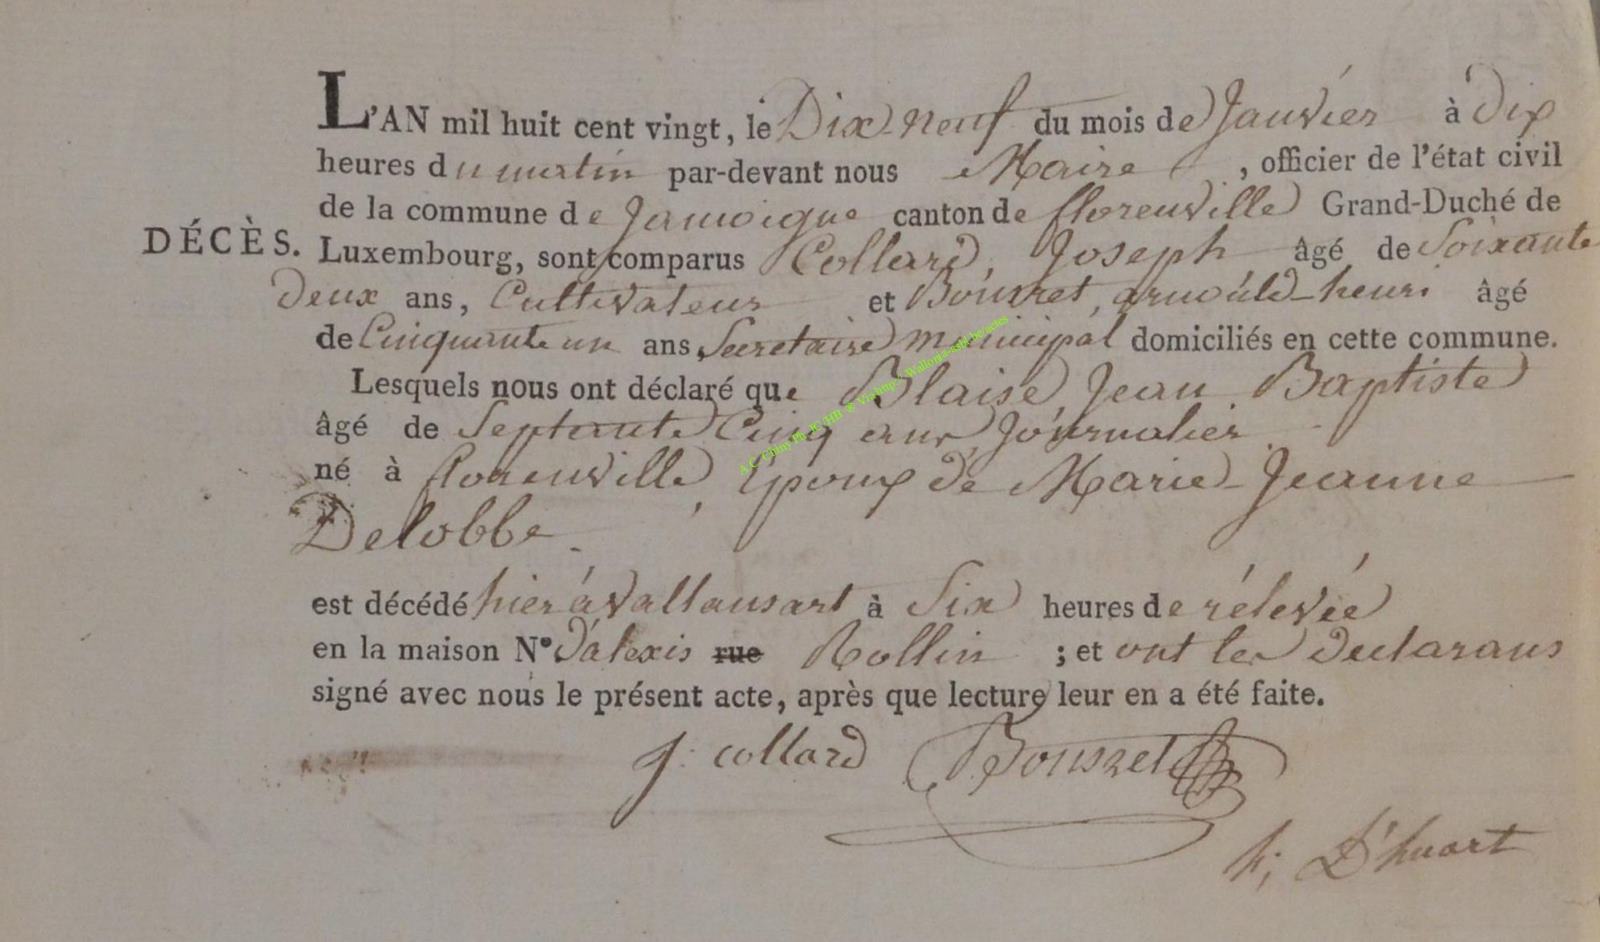 L'AN mil huit cent vingt, le Dix-neuf du mois de Janvier à Dix
heures du matin par-devant nous Maire, officier de l'état civil
de la commune de Jamoigne canton de florenville Grand-Duché de
DÉCÈS. Luxembourg, sont comparus Collard, Joseph âgé de Soixante
deux ans, Cultivateur et Bousret, arnould-henri âgé
de Cinquante un ans, Secretaire municipal domiciliés en cette commune.
Lesquels nous ont déclaré que Blaise, Jean Baptiste
âgé de Septante Cinq ans, Journalier
né à florenville, Epoux de Marie-Jeanne
Delobbe.
est décédé hier à Vallansart à Six heures de rélevée
en la maison N° d'alexis rue Rollin ; et ont les declarans
signé avec nous le présent acte, après que lecture leur en a été faite.
J. collard Bousret
h; D'huart